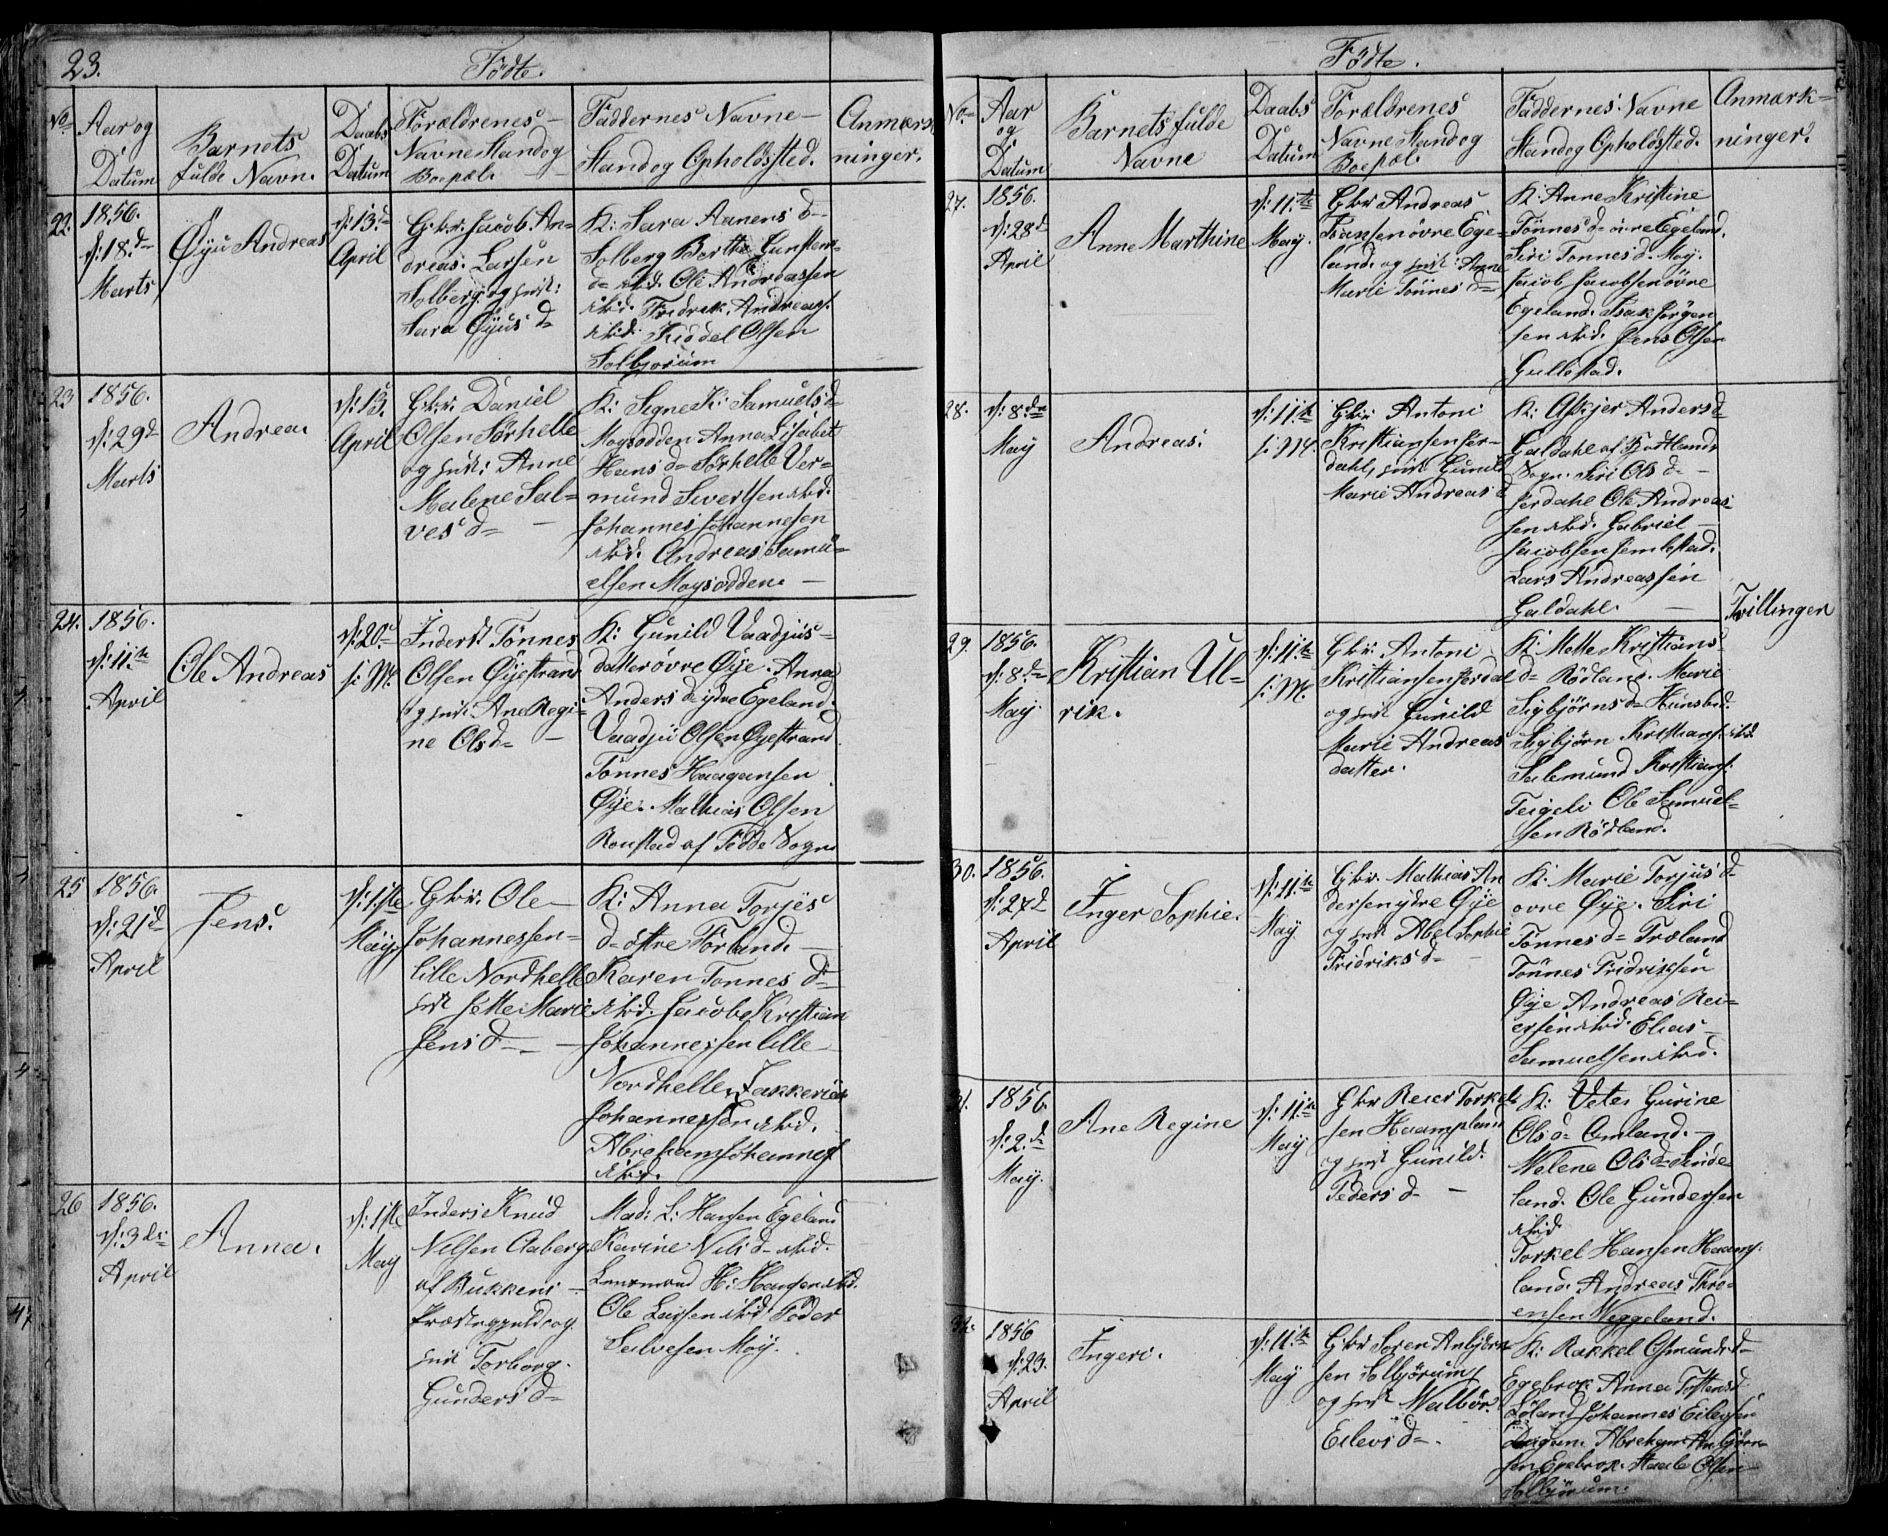 23.
Födte.
No
Aar og
Datum
Barnets
fulde Navn.
Daabs
Datum
Forældrenes
Navne Stand og
Boepæl.
Faddernes Navne
Stand og Opholdssted.
Anmærk
ninger.
22.
1856.
d: 18.d
Marts
Öyu Andreas
d: 13.d
April
Gbr. Jacob An-
dreas Larsen
Solberg og
Sara Öyus d
K: Sara Aanens d
Solberg Bertha Gunstens
d ibd. Ole Andreassen
ibd. Fredrik Andreass.
ibd. Kiddel Olsen
Solbjorum
23
1856.
d: 29d
Marts
Andrea.
d: 13.
April
Gbr. Daniel
Olsen Sörhelle
og Anne
Malene Sal-
ves d
K: Signe K: Samuels d
Moysodden Anna Lisabet
Hans d Sörhelle Ver-
mund Sivertsen ibd.
Johannes Johannesen
ibd. Andreas Samu-
elsen Moysodden.
24.
1856.
d: 11.te
April
Ole Andreas
d: 20.
s: M.
Inderst Tönnes
Olsen Öyestrand
og Ane Regi-
ne Ols d
K: Gunild Vaadjus-
datter övre Öye. Anna
Anders d ydre Egeland.
Vaadju Olsen Öyestrand
Tönnes Haagansen
Öye. Mathias Olsen
Ronstad af Fedde Sogn
25
1856.
d: 21d
April
Jens.
d: 1ste
May
Gbr. Ole
Johannessen
lille Nordhelle
Jette Marie
Jens d
K: Anna Torjes
d östre Förland.
Karen Tonnes d
ibd. Jacob Kristian
Johannessen lille
Nordhelle, Zakkerias
Johannessen ibd.
Abreham Johanness
ibd.
26
1856.
d: 3de
April
Anna.
d: 1ste
May
Inders. Knud
Nilsen Aaberg
af Bukkens
Præstegjeld og
Torborg
Gunders d
Mad: L: Hansen Egeland
Karine Nils d ibd.
Lensmand H: Hansen ibd.
Ole Larsen ibd. Peder
Salvesen Moy.
Födte.
No
Aar
og
Datum
Barnets fulde
Navne
Daabs
Datum
Forældrenes
Navne Stand og
Boepæl.
Faddernes Navne
Stand og Opholdssted.
Anmærk-
ninger.
27.
1856.
d: 28d
April
Anne Marthine
d: 11.te
May.
Gbr Andreas
Isansen övre Ege-
land. og Anne
Marie Tönnes d
K: Anne Kristine
Tönnes d övre Egeland.
Siri Tonnes d. Moy.
Jacob Jacobsen övre
Egeland. Isak Jörgen
sen ibd. Jens Olsen
Gullestad.
28.
d: 8de
May
Andreas.
d: 11te
s: M.
Gbr Antoni
Kristiansen Jer-
dahl, Gunild
Marie Andreas d
K: Askjer Anders d
Galdahl af
Sogn. Siri Ols d
Jerdahl Ole Andreas-
sen ibd. Gabriel
Jacobsen Jemlestad.
Lars Andreassen
Galdahl.
Tvillinger
29.
1856.
d: 8de
May
Kristian Ul-
rik.
d: 11.te
s: M.
Gbr. Antoni
Kristiansen Jerdal
og Gunild
Marie Andreas
datter.
K: Mette Kristians
d Rödland. Marie
Sigbjörns d Hunsbed.
Sigbjörn Kristians. ibd
Salemund Kristians.
Teigeli Ole Samuel-
sen Rödland.
30.
1856.
d: 27d
April
Inger Sophie.
d: 11.te
May
Gbr. Mathias An
dersen ydre Öye
og Abel Sophie
Fridriks d
K: Marie Torjus d
övre Öye. Siri
Tönnes d Træland
Tönnes Fridriksen
Öye Andreas Rei-
ersen ibd. Elias
Samuelsen ibd.
31.
1856.
d: 2.d
May.
Ane Regine
d: 11.te
May
Gbr Reier Torkel-
sen Haampland
og Gunild.
Peders d
K: Gurine
Ols d Omland.
Helene Ols d Linde-
land. Ole Gundersen
ibid
Torkel Hansen Haamp.
land. Andreas Thro-
ensen Wiggeland.
32.
1856
d: 23.
April
Ingeri.
d: 11.te
May
Gbr Soren Anbjörn
sen Solbjörum
og Walbör.
Eilevs d
K: Rakkel Osmunds d
Egebrok Anna Tostens d
Löland Johannes Eilevsen
Abreham Anbjörn-
sen Egebrok. Staale Olsen
Solbjörum.